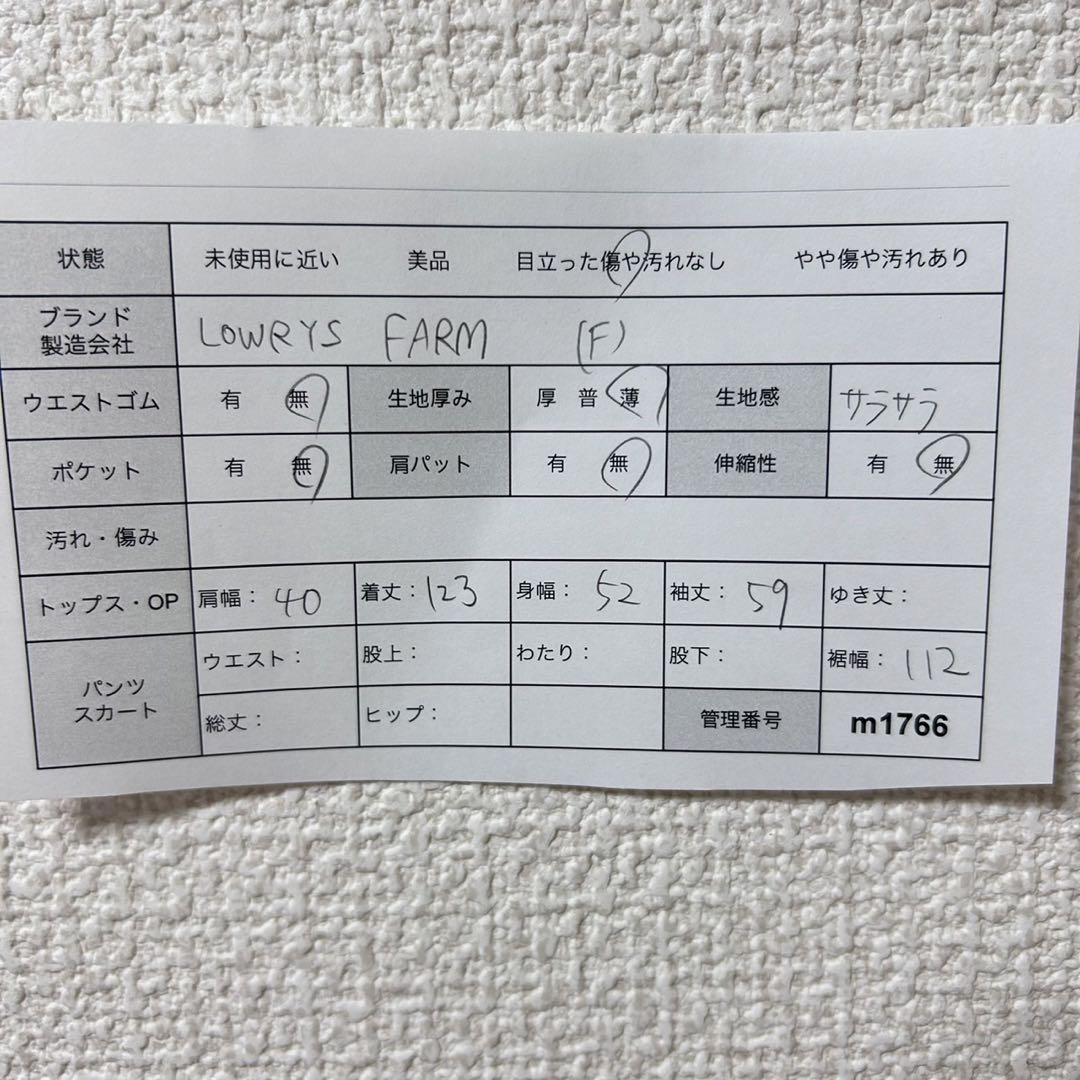 状態 未使用に近い 美品 目立った傷や汚れなし やや傷や汚れあり
ブランド
製造会社 LOWRYS FARM (F)
ウエストゴム 有 無 生地厚み 厚 普 薄 生地感 サラサラ
ポケット 有 無 肩パット 有 無 伸縮性 有 無
汚れ・傷み
トップス・OP 肩幅： 40 着丈： 123 身幅： 52 袖丈： 59 ゆき丈：
パンツ
スカート
ウエスト： 股上： わたり： 股下： 裾幅： 112
総丈： ヒップ： 管理番号 m1766